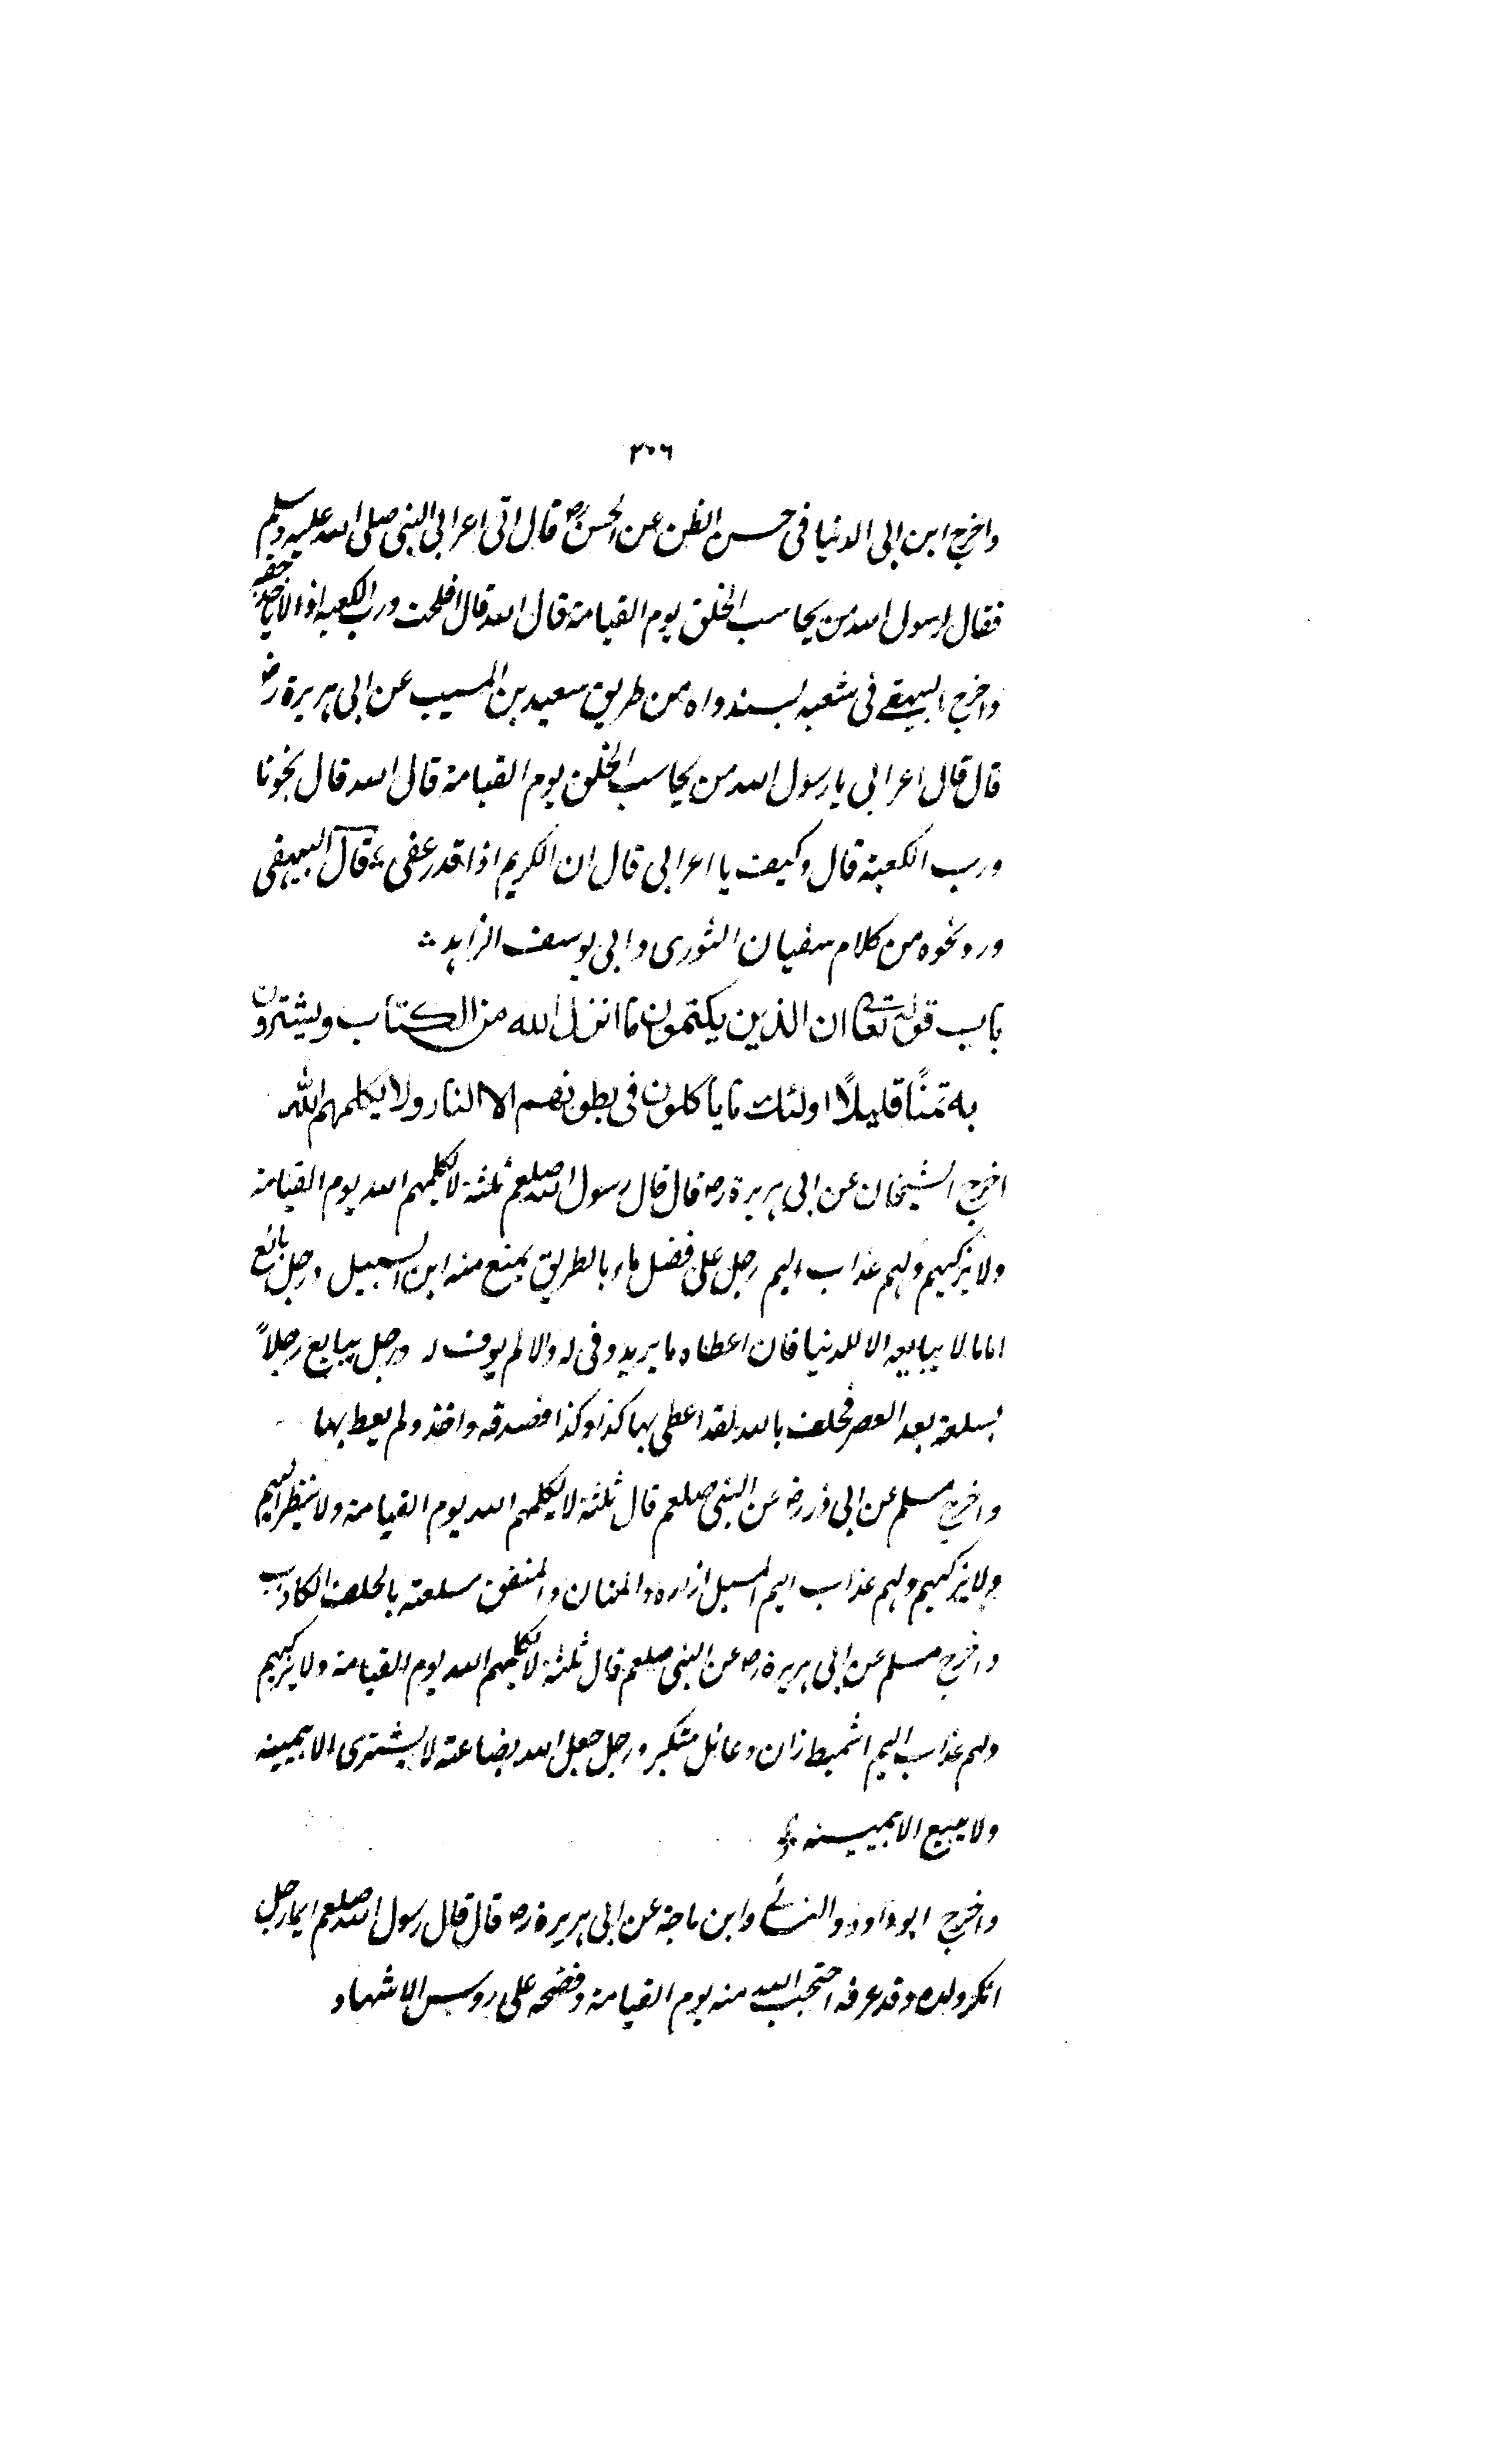 ٢٠٦
واخرج ابن ابى الدنيا فى حسن الظن عن الحسن رض قال اتى اعرابى النبى صلى الله عليه وسلم
فقال رسول الله من يحاسب الخلق يوم القيامة قال الله قال افلحت ورب الكعبه اذا لا ياخذ حقه
واخرج البيهقے فى شعبه بسند واه من طريق سعيد بن المسيب عن ابى ہريرة رض
قال قال اعرابى يا رسول الله من يحاسب الخلق يوم القيامة قال الله قال نجونا
ورب الكعبة قال وكيف يا اعرابى قال ان الكريم اذا قدر عفى ؞ قال البيهقى
ورد نحوه من كلام سفيان الثورى وابى يوسف الزاہد ؞
باب قوله تعالى ان الذين يكتمون ما انزل الله من الكتاب ويشترون
به ثمنًا قليلًا اولئك ما ياكلون فى بطونهم الا النار ولا يكلمهم الله
اخرج الشيخان عن ابى ہريرة رض قال قال رسول الله صلعم ثلثة لا يكلمهم الله يوم القيامة
ولا يزكيهم ولہم عذاب اليم رجل على فضل ماء بالطريق يمنع منه ابن السبيل ورجل بائع
اماما لا يبايعه الا للدنيا فان اعطاه ما يريد وفى له والا لم يوف له ورجل يبايع رجلاً
بسلعة بعد العصر فحلف بالله لقد اعطى بها كذا وكذا فصدقه واخذ ولم يعط بها
واخرج مسلم عن ابى ذر رض عن النبى صلعم قال ثلثة لا يكلمهم الله يوم القيامة ولا ينظر اليهم
ولا يزكيهم ولہم عذاب اليم المسبل ازاره والمنان والمنفق سلعته بالحلف الكاذب
واخرج مسلم عن ابى ہريرة رض عن النبى صلعم قال ثلثة لا يكلمهم الله يوم القيامة ولا يزكيهم
ولهم عذاب اليم اشميط زان وعائل متكبر ورجل جعل الله بضاعته لا يشترى الا بيمينه
ولا يبيع الا بيمينه
واخرج ابو داود والنسائے وابن ماجة عن ابى ہريرة رض قال قال رسول الله صلعم ايما رجل
انكر ولده وقد عرفه احتجب الله منه يوم القيامة وفضحه على روس الاشهاد